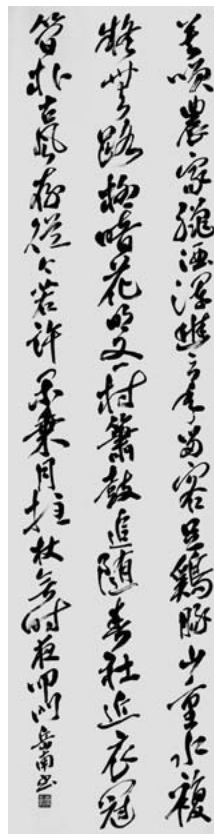 莫咲農家臘酒渾豊年留客足鶏豚山重水複
疑無路柳暗花明又一村簫鼓追隨春社近衣冠
簡朴古風存從今若許閑乗月拄杖無時夜叩門岳南书